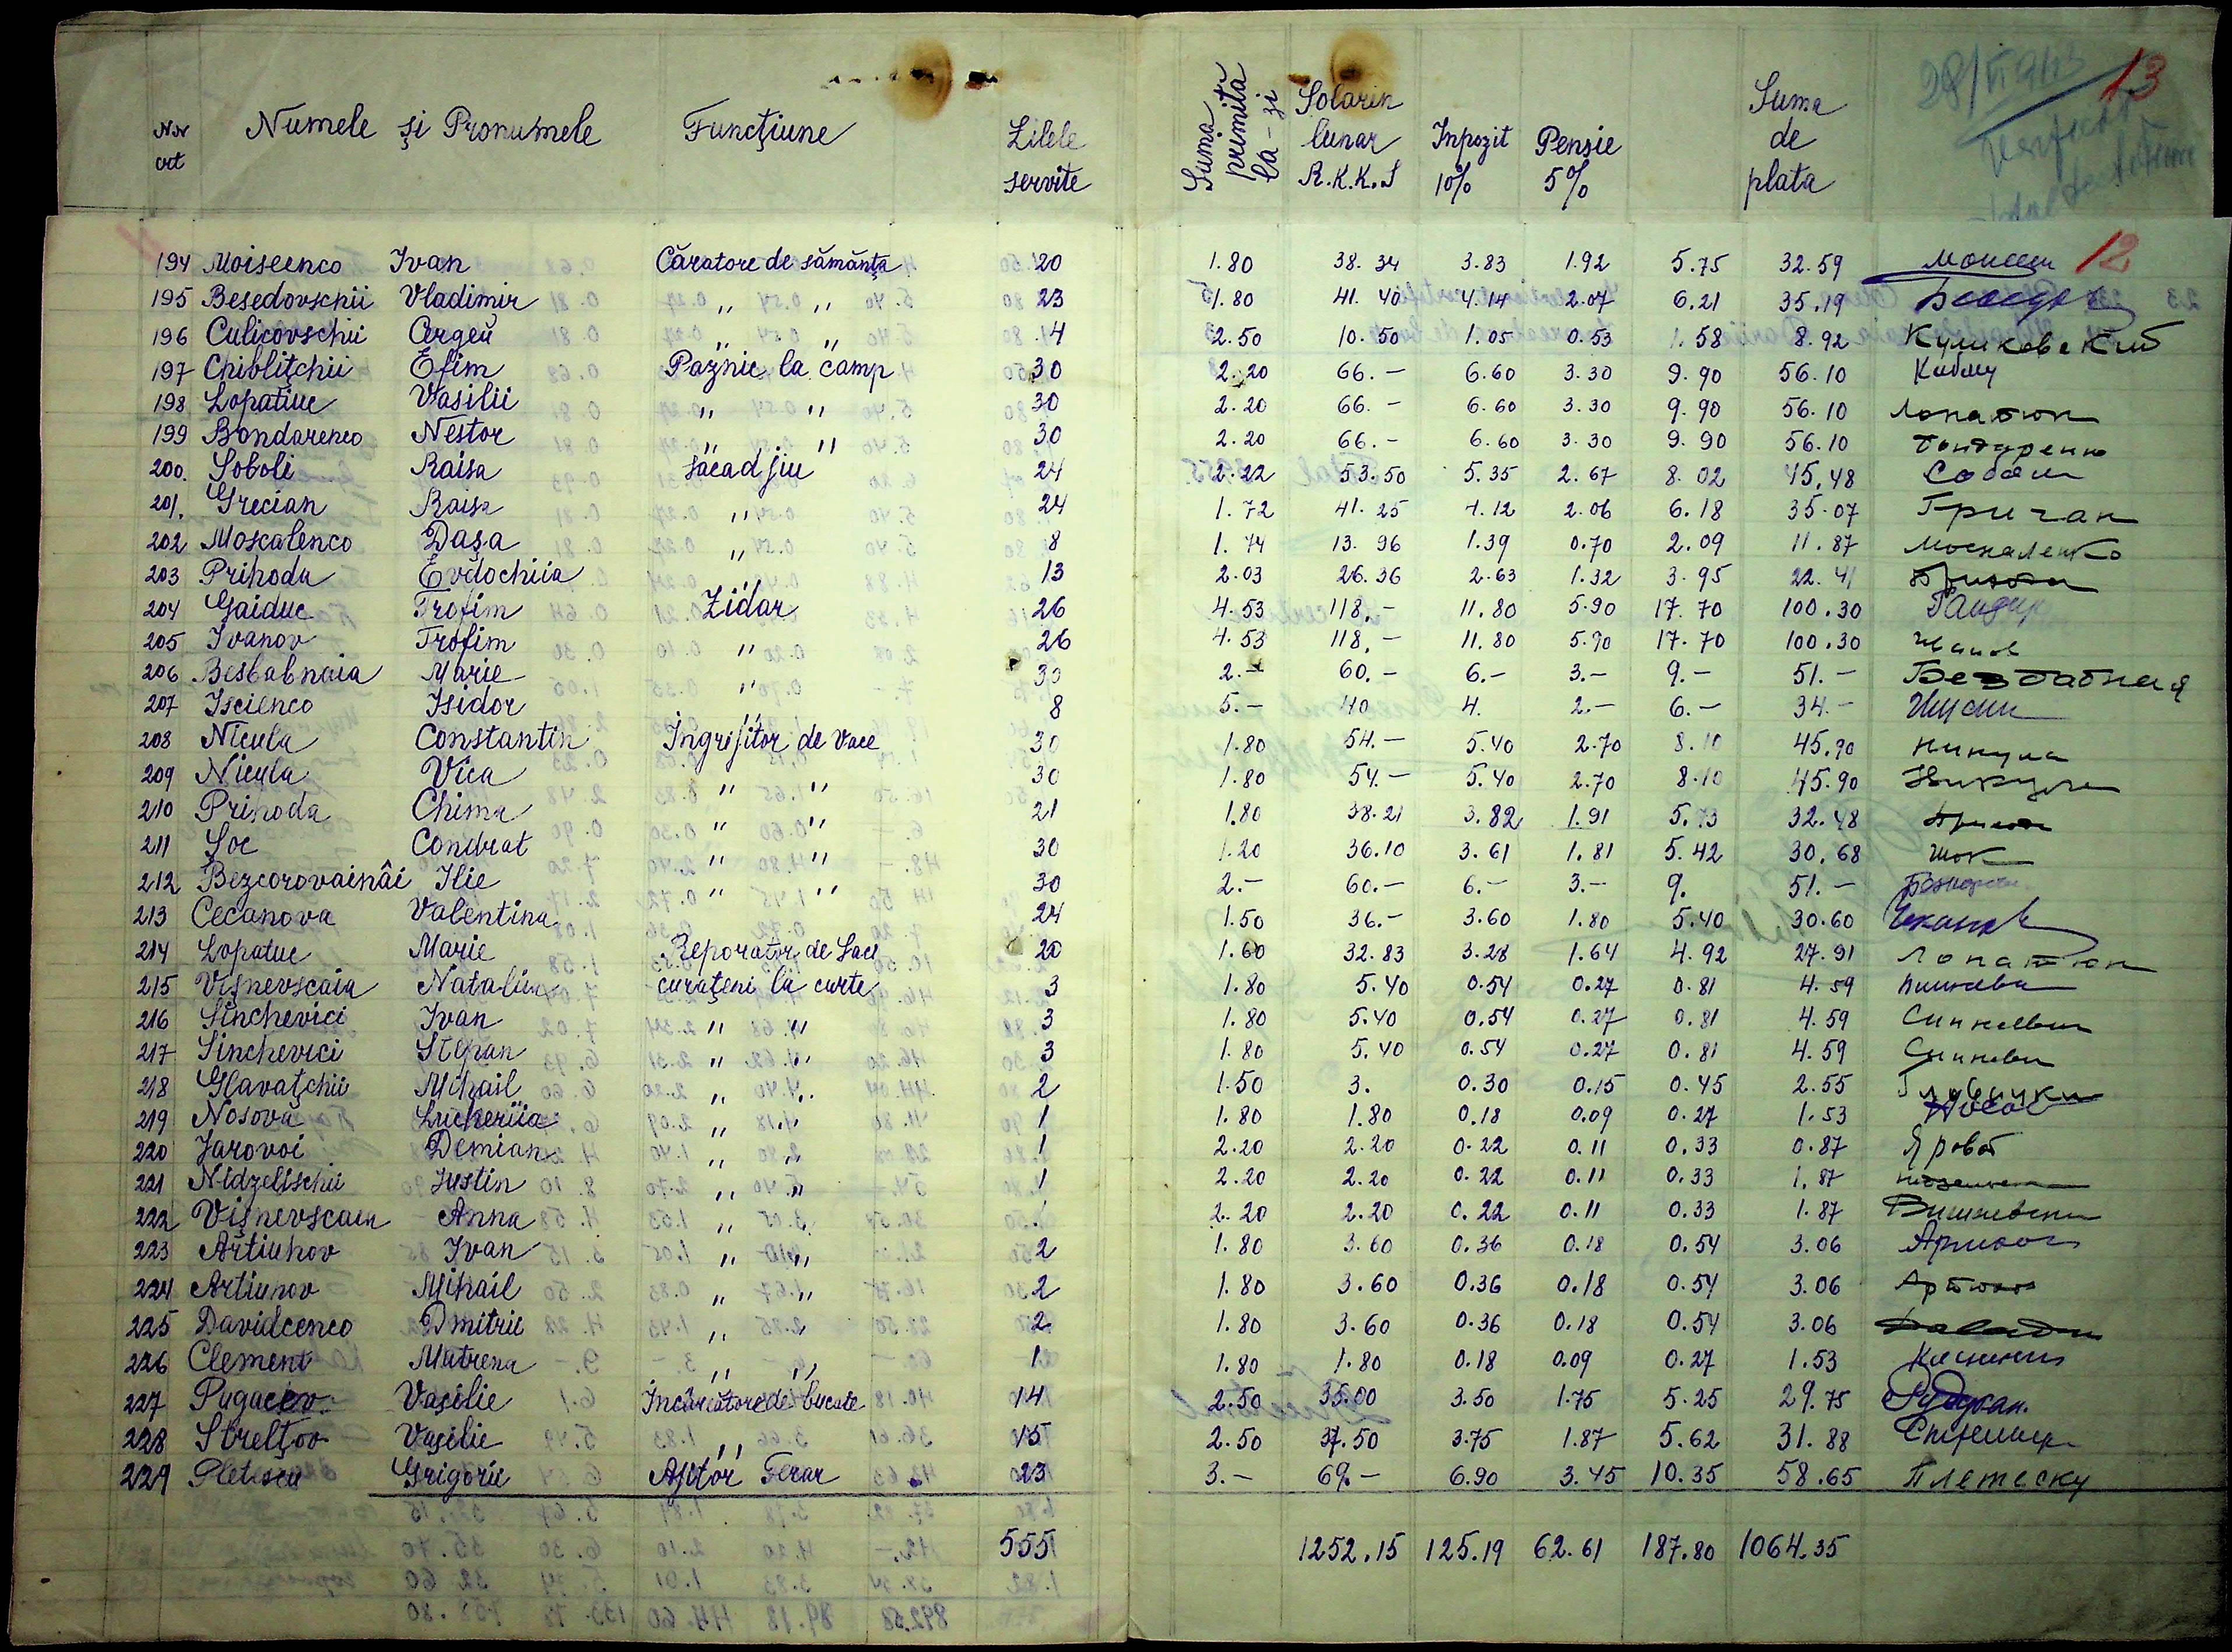 Nr crt Numele şi Pronumele Funcţiune Zilele servite Suma primită la-zi Solarin lunar R.K.K.S Inpozit 10% Pensie 5% Suma de plata 13
194 Moiseenco Ivan Căratore de sămănţa 20 1.80 38.34 3.83 1.92 5.75 32.59 12
195 Besedovschii Vladimir " " 23 1.80 41.40 4.14 2.07 6.21 35.19
196 Culicovschii Cergeŭ " " 4 2.50 10.50 1.05 0.53 1.58 8.92 Куликовский
197 Chibliţchii Efim Paznic la camp 30 2.20 66.- 6.60 3.30 9.90 56.10
198 Lopatiuc Vasilii " " 30 2.20 66.- 6.60 3.30 9.90 56.10 Лопатюк
199 Bondarenco Nestor " " 30 2.20 66.- 6.60 3.30 9.90 56.10 Бондаренко
200. Soboli Raisa săcadjiu 24 2.22 53.50 5.35 2.67 8.02 45.48 Соболи
201. Grecian Raisa " 24 1.72 41.25 4.12 2.06 6.18 35.07 Гричан
202 Moscalenco Daşa " 8 1.74 13.96 1.39 0.70 2.09 11.87 Москаленко
203 Prihoda Evdochiia " 13 2.03 26.36 2.63 1.32 3.95 22.41
204 Gaiduc Trofim Zidar 26 4.53 118.- 11.80 5.90 17.70 100.30
205 Ivanov Trofim " 26 4.53 118.- 11.80 5.90 17.70 100.30 Иванов
206 Besbabnaia Marie " 30 2.- 60.- 6.- 3.- 9.- 51.- Безбабная
207 Iscienco Isidor " 8 5.- 40 4. 2.- 6.- 34.-
208 Nicula Constantin Îngrijitor de vace 30 1.80 54.- 5.40 2.70 8.10 45.90 Никула
209 Nicula Vica " " 30 1.80 54.- 5.40 2.70 8.10 45.90 Никула
210 Prihoda Chima " " 21 1.80 38.21 3.82 1.91 5.73 32.48
211 Şoc Condrat " " 30 1.20 36.10 3.61 1.81 5.42 30.68 Шок
212 Bezcorovainâi Ilie " " 30 2.- 60.- 6.- 3.- 9. 51.-
213 Cecanova Valentina 24 1.50 36.- 3.60 1.80 5.40 30.60
214 Lopatuc Marie Reporator de Saci 20 1.60 32.83 3.28 1.64 4.92 27.91 Лопатюк
215 Vişnevscaia Natalia curaţeni la curte 3 1.80 5.40 0.54 0.27 0.81 4.59
216 Sinchevici Ivan " " 3 1.80 5.40 0.54 0.27 0.81 4.59
217 Sinchevici Stepan " " 3 1.80 5.40 0.54 0.27 0.81 4.59
218 Glavaţchii Mihail " " 2 1.50 3. 0.30 0.15 0.45 2.55
219 Nosova Lucheriia " " 1 1.80 1.80 0.18 0.09 0.27 1.53
220 Jarovoi Demian " " 1 2.20 2.20 0.22 0.11 0.33 0.87
221 Nidzelischii Justin " " 1 2.20 2.20 0.22 0.11 0.33 1.87
222 Vişnevscaia Anna " " 2.20 2.20 0.22 0.11 0.33 1.87
223 Artiuhov Ivan " " 2 1.80 3.60 0.36 0.18 0.54 3.06
224 Artiuhov Mihail " " 2 1.80 3.60 0.36 0.18 0.54 3.06
225 Davidcenco Dmitrie " " 2 1.80 3.60 0.36 0.18 0.54 3.06
226 Clement Matrena " " 1 1.80 1.80 0.18 0.09 0.27 1.53
227 Pugacev Vasilie Incărcătore de bucate 14 2.50 35.00 3.50 1.75 5.25 29.75
228 Streltov Vasilie " 15 2.50 37.50 3.75 1.87 5.62 31.88
229 Pletescu Grigorie Ajitor Ferar 23 3.- 69.- 6.90 3.45 10.35 58.65 Плетеску
555 1252.15 125.19 62.61 187.80 1064.35